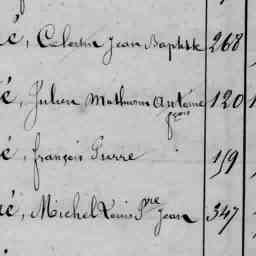 é, Celestin Jean Baptiste 268
é, Julien Mathurin Antoine 120
fçois
é, françois Pierre 119
é, Michel Louis Pre Jean 347